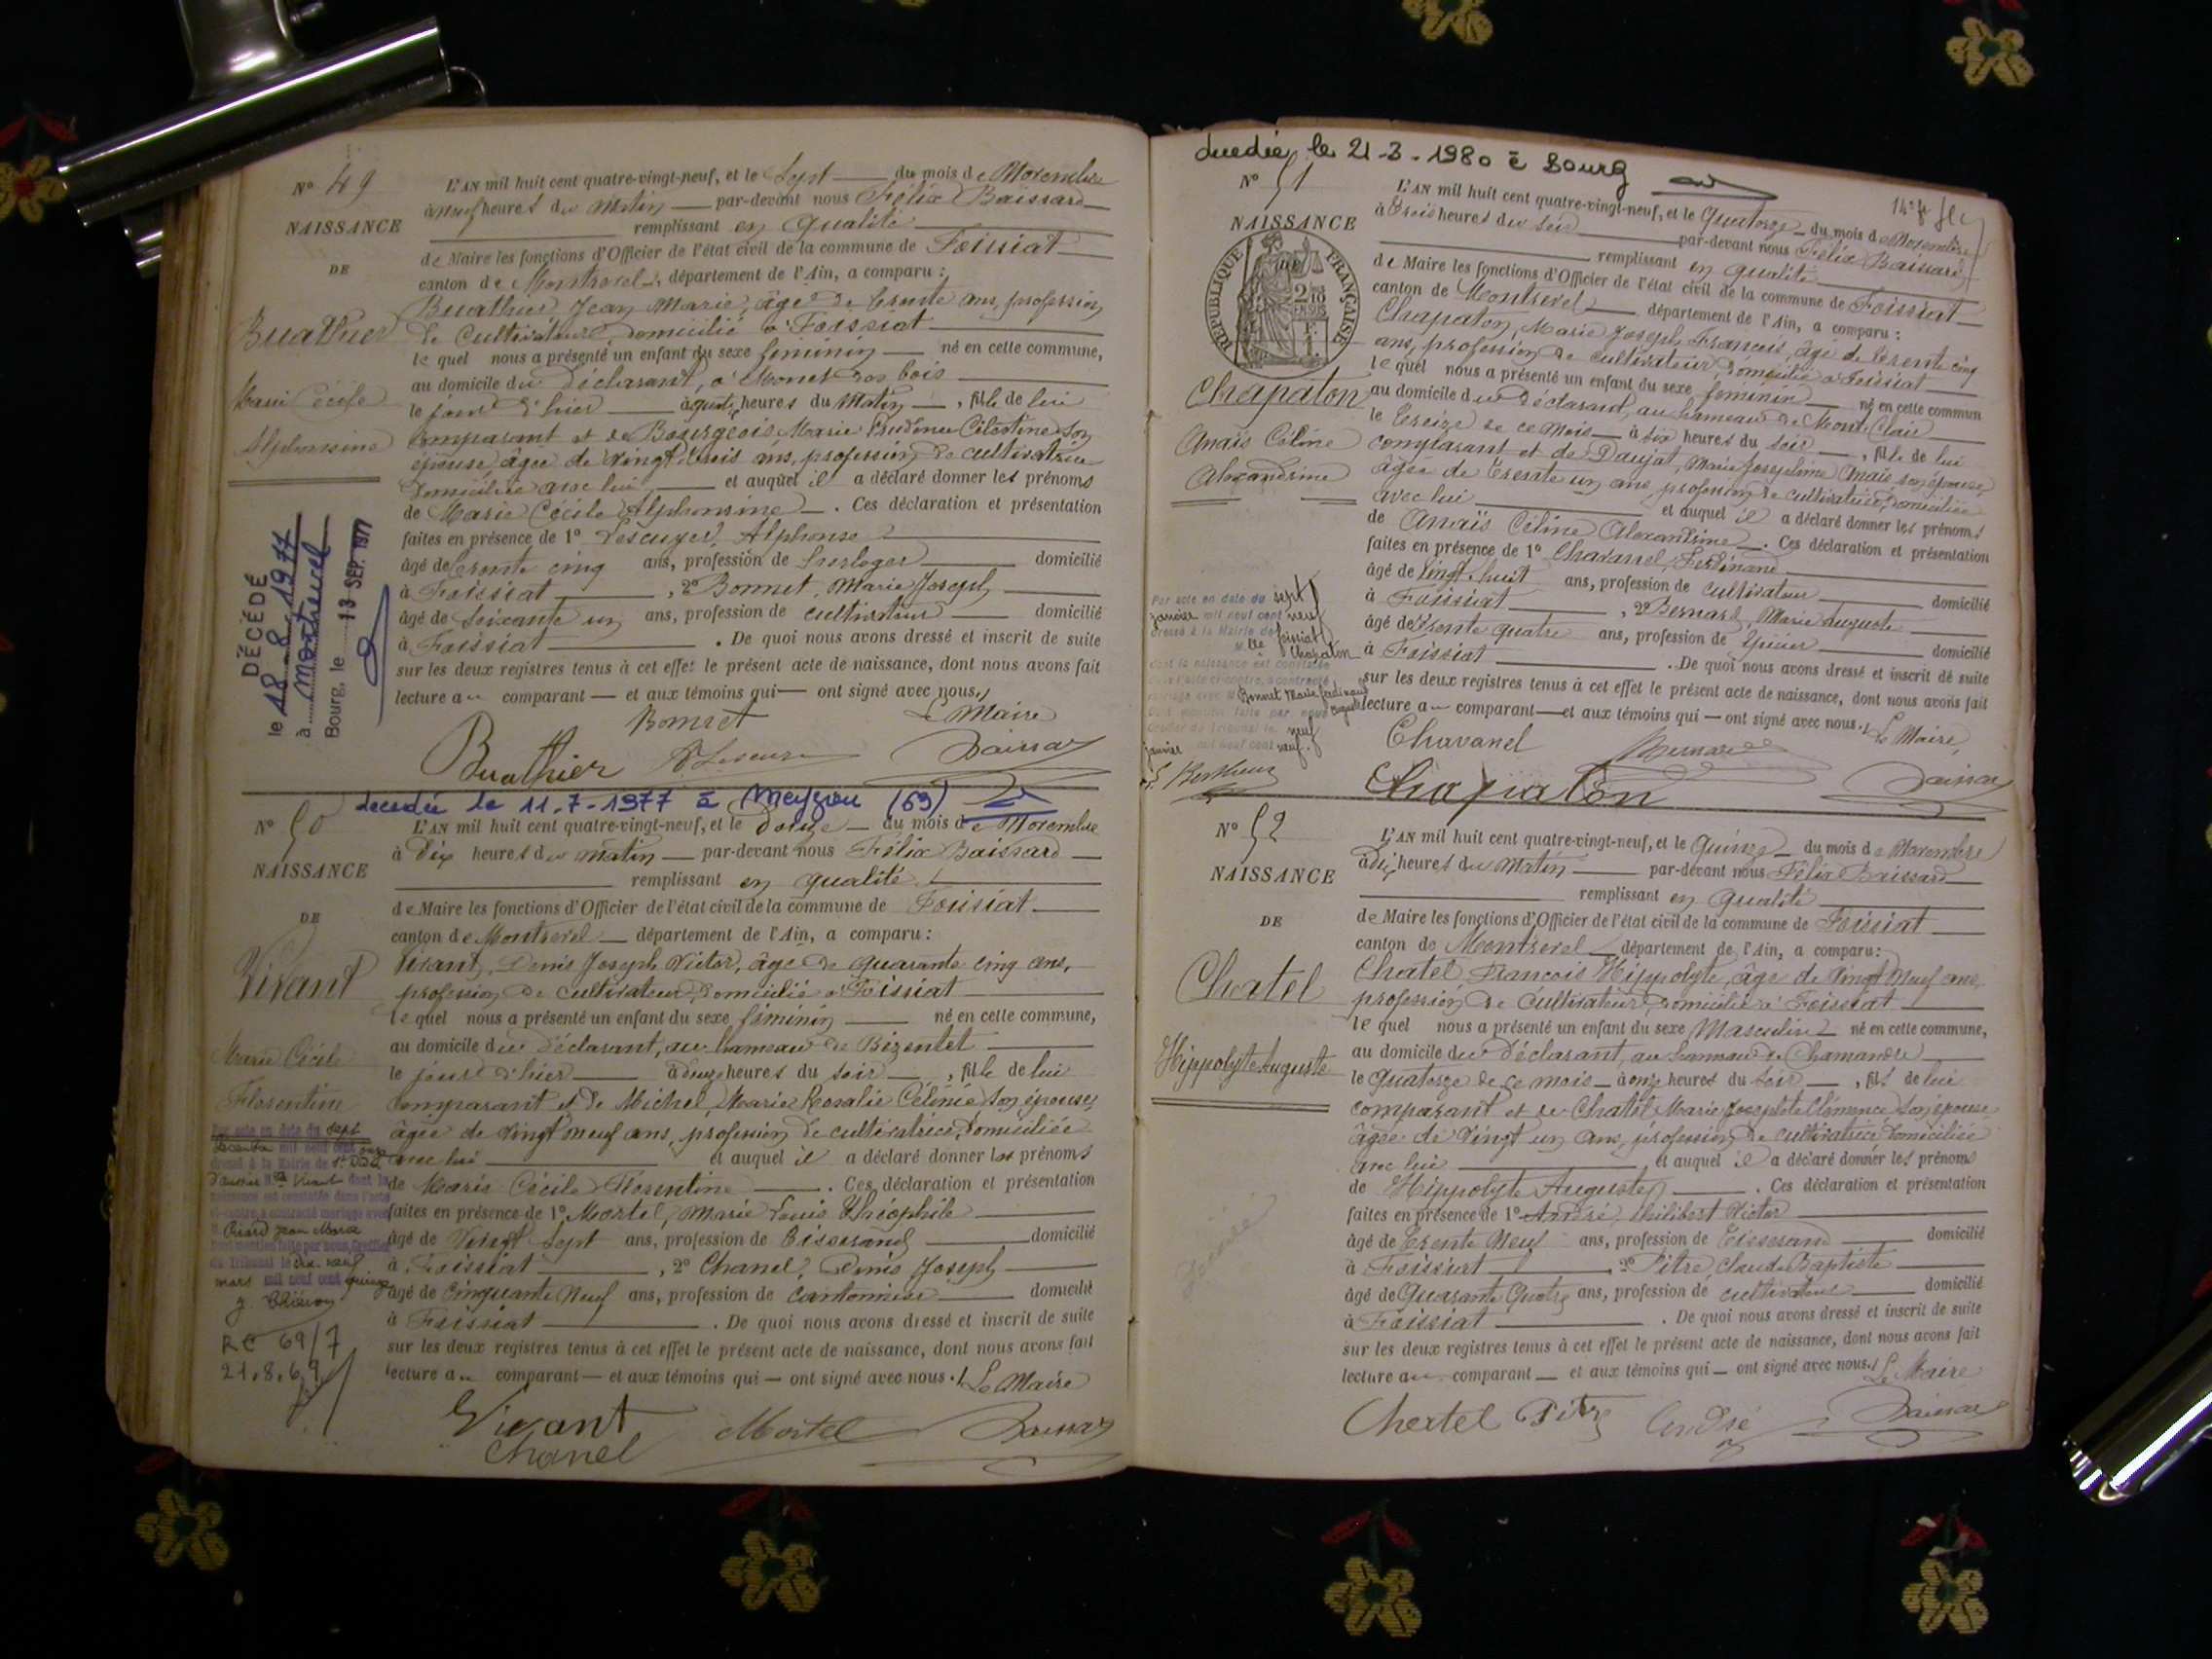 N° 49
NAISSANCE
DE
Buathier
Marie Cécile
Alphonsine
DÉCÉDÉ
le 18 8 1977
à Montrevel
Bourg, le 13 SEP. 1977
L'AN mil huit cent quatre-vingt-neuf, et le Sept du mois de Novembre
à neuf heures du Matin par-devant nous Félix Baissard
remplissant en qualité
de Maire les fonctions d'Officier de l'état civil de la commune de Foissiat
canton de Montrevel, département de l'Ain, a comparu :
Buathier Jean Marie, âgé de trente ans, profession
de Cultivateur, domicilié à Foissiat
le quel nous a présenté un enfant du sexe féminin né en cette commune,
au domicile du déclarant, à
le jour d'hier à quatre heures du Matin, fille de lui
comparant et de Bourgeois Marie Prudence Célestine son
épouse, âgée de vingt trois ans, profession de cultivatrice
domiciliée avec lui et auquel il a déclaré donner les prénoms
de Marie Cécile Alphonsine. Ces déclaration et présentation
faites en présence de 1° Lescuyer, Alphonse
âgé de trente cinq ans, profession de horloger domicilié
à Foissiat, 2° Bonnet, Marie Joseph
âgé de Soixante un ans, profession de cultivateur domicilié
à Foissiat. De quoi nous avons dressé et inscrit de suite
sur les deux registres tenus à cet effet le présent acte de naissance, dont nous avons fait
lecture au comparant — et aux témoins qui — ont signé avec nous.
Bonnet Le Maire
Buathier Baissard
decedée le 11.7-1977 à Meyzieu (69)
N° 50
NAISSANCE
DE
Vivant
Marie Cécile
Florentine
Par acte en date du sept
mil neuf cent
dressé à la Mairie de St Didier
d'Aussiat Vivant dont la
naissance est constatée dans l'acte
ci-contre, a contracté mariage avec
M. Jean Marie
Dont mention faite par nous, Greffier
du Tribunal le dix neuf
mars mil neuf cent quinze
RC 69/7
21.8.69
L'AN mil huit cent quatre-vingt-neuf, et le douze du mois de Novembre
à Dix heures du matin par-devant nous Félix Baissard
remplissant en qualité
de Maire les fonctions d'Officier de l'état civil de la commune de Foissiat
canton de Montrevel département de l'Ain, a comparu :
Vivant, Denis Joseph Victor, âgé de quarante cinq ans,
profession de cultivateur, domicilié à Foissiat
le quel nous a présenté un enfant du sexe féminin né en cette commune,
au domicile du déclarant, au hameau de Bizentet
le jour d'hier à douze heures du soir, fille de lui
comparant et de Michel, Marie Rosalie Célénie son épouse,
âgée de vingt neuf ans, profession de cultivatrice, domiciliée
avec lui et auquel il a déclaré donner les prénoms
de Marie Cécile Florentine. Ces déclaration et présentation
faites en présence de 1° Mortel, Marie Louis Théophile
âgé de Vingt sept ans, profession de tisserand domicilié
à Foissiat, 2° Chanel, Denis Joseph
âgé de Cinquante Neuf ans, profession de cantonnier domicilié
à Foissiat. De quoi nous avons dressé et inscrit de suite
sur les deux registres tenus à cet effet le présent acte de naissance, dont nous avons fait
lecture au comparant — et aux témoins qui — ont signé avec nous. Le Maire
Vivant Mortel Baissard
Chanel
decedée le 21-3-1980 à Bourg
N° 51
NAISSANCE
DE
RÉPUBLIQUE FRANÇAISE
Chapaton
Anaïs Céline
Alexandrine
Par acte en date du sept
janvier mil neuf cent neuf
dressé à la Mairie de Foissiat
Mlle Chapaton
dont la naissance est constatée
dans l'acte ci-contre, a contracté
mariage avec M. Bonnet Marie Ferdinand
Dont mention faite par nous
Greffier du Tribunal le neuf
janvier mil neuf cent neuf.
L'AN mil huit cent quatre-vingt-neuf, et le Quatorze du mois de Novembre
à trois heures du soir par-devant nous Félix Baissard
remplissant en qualité
de Maire les fonctions d'Officier de l'état civil de la commune de Foissiat
canton de Montrevel département de l'Ain, a comparu :
Chapaton, Marie Joseph Francois, âgé de trente cinq
ans, profession de cultivateur, domicilié à Foissiat
le quel nous a présenté un enfant du sexe féminin né en cette commun
au domicile du déclarant, au hameau de Mont Clair
le treize de ce mois à six heures du soir, fille de lui
comparant et de Daujat, Marie Josephine Anaïs son épouse,
âgée de trente un ans, profession de cultivatrice, domiciliée
avec lui et auquel il a déclaré donner les prénoms
de Anaïs Céline Alexandrine. Ces déclaration et présentation
faites en présence de 1° Chavanel, Ferdinand
âgé de vingt huit ans, profession de cultivateur domicilié
à Foissiat, 2° Bernard, Marie Auguste
âgé de trente quatre ans, profession de Épicier domicilié
à Foissiat. De quoi nous avons dressé et inscrit de suite
sur les deux registres tenus à cet effet le présent acte de naissance, dont nous avons fait
lecture au comparant — et aux témoins qui — ont signé avec nous. Le Maire,
Chavanel Bernard
Chapaton Baissard
N° 52
NAISSANCE
DE
Chatel
Hippolyte Auguste
L'AN mil huit cent quatre-vingt-neuf, et le Quinze du mois de Novembre
à dix heures du Matin par-devant nous Félix Baissard
remplissant en qualité
de Maire les fonctions d'Officier de l'état civil de la commune de Foissiat
canton de Montrevel département de l'Ain, a comparu :
Chatel, Francois Hippolyte, âgé de Vingt Neuf ans,
profession de cultivateur, domicilié à Foissiat
le quel nous a présenté un enfant du sexe Masculin né en cette commune,
au domicile du déclarant, au hameau de Chamandre
le quatorze de ce mois à onze heures du soir, fils de lui
comparant et de Chatel Marie Josephte Clémence son épouse
âgée de Vingt un ans, profession de cultivatrice domiciliée
avec lui et auquel il a déclaré donner les prénoms
de Hippolyte Auguste. Ces déclaration et présentation
faites en présence de 1° André, Philibert Victor
âgé de Trente Neuf ans, profession de Tisserand domicilié
à Foissiat 2° Pitre, Claude Baptiste
âgé de Quarante Quatre ans, profession de cultivateur domicilié
à Foissiat. De quoi nous avons dressé et inscrit de suite
sur les deux registres tenus à cet effet le présent acte de naissance, dont nous avons fait
lecture au comparant — et aux témoins qui — ont signé avec nous. Le Maire
Chatel Pitre André Baissard